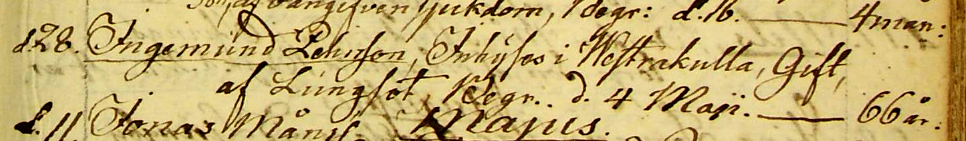 oangifven sjukdom, Begr: d. 16. 4 mån:
d. 28. Ingemund Pehrson, Inhyses i Westrakulla, Gift,
af Lungsot, Begr. d. 4 Maji. 66 år:
Majus.
d. 11 Jonas Månss